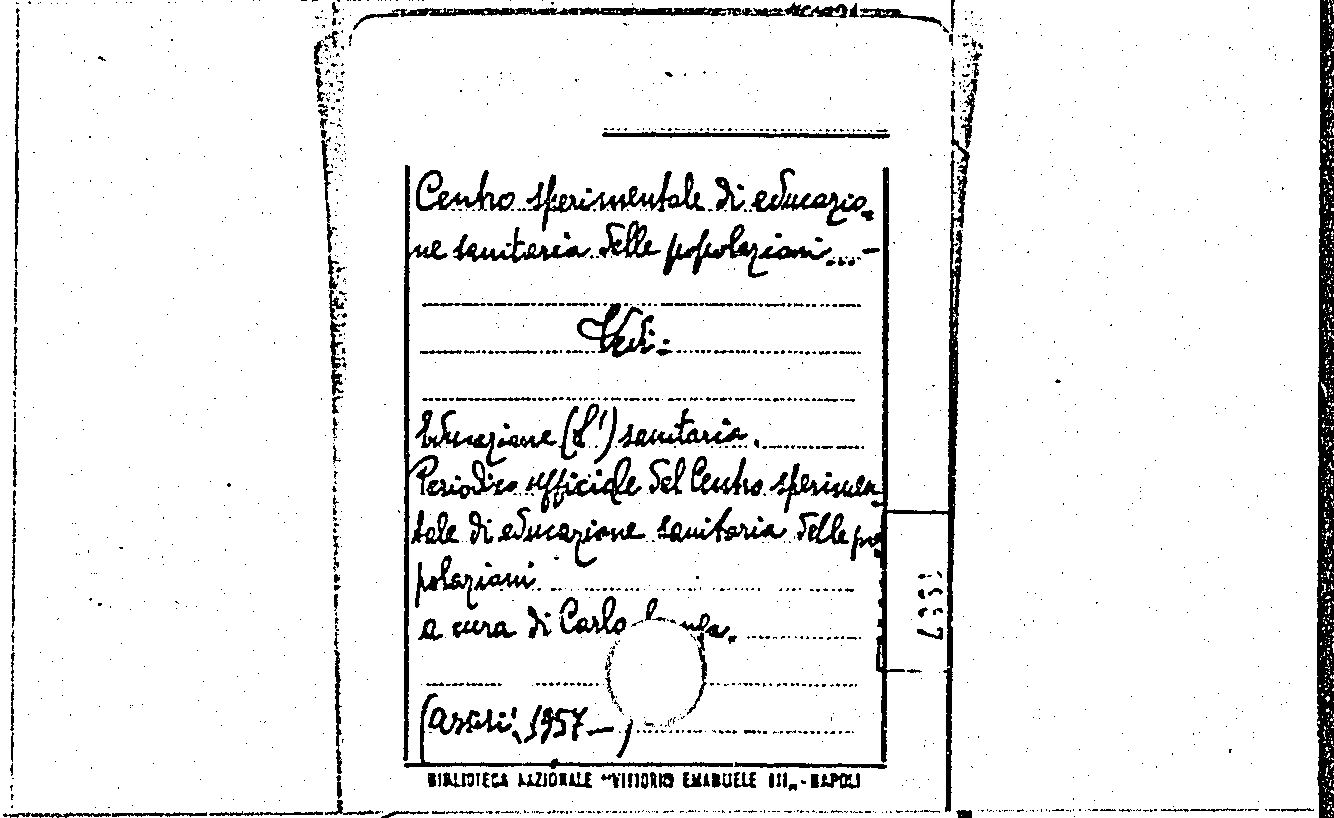 Centro sperimentale di educazio-
ne sanitaria delle popolazioni... -
Vedi:
Educazione (L') sanitaria.
Periodico ufficiale del Centro sperimen-
tale di educazione sanitaria delle po
polazioni
a cura di Carlo
(Assisi, 1957 - )
BIBLIOTECA NAZIONALE "VITTORIO EMANUELE III„ - NAPOLI